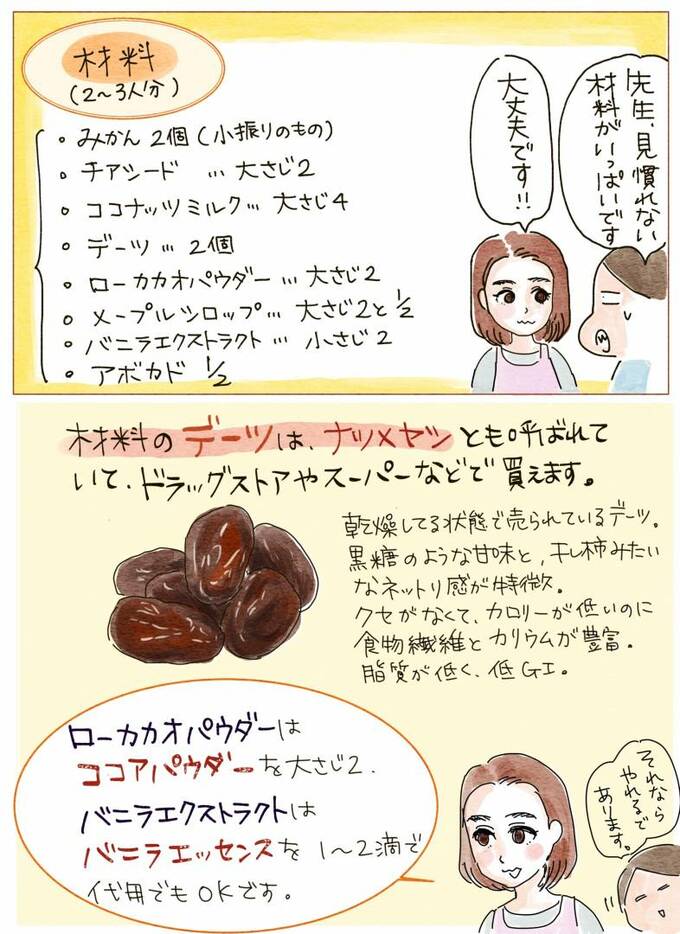 材料
(2〜3人分)
・みかん 2個(小振りのもの)
・チアシード … 大さじ2
・ココナッツミルク… 大さじ4
・デーツ … 2個
・ローカカオパウダー … 大さじ2
・メープルシロップ… 大さじ2と1/2
・バニラエクストラクト … 小さじ2
・アボカド 1/2
先生、見慣れない
材料がいっぱいです
大丈夫です!!
材料のデーツは、ナツメヤシとも呼ばれて
いて、ドラッグストアやスーパーなどで買えます。
乾燥してる状態で売られているデーツ。
黒糖のような甘味と、干し柿みたい
なネットリ感が特徴。
クセがなくて、カロリーが低いのに
食物繊維とカリウムが豊富。
脂質が低く、低GI。
ローカカオパウダーは
ココアパウダーを大さじ2.
バニラエクストラクトは
バニラエッセンスを1〜2滴で
代用でもOKです。
それなら
やれるで
あります。